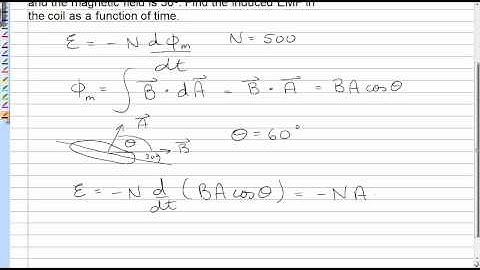 and the magnetic field is 30°. Find the induced EMF in
the coil as a function of time.
ε = -N dΦm/dt N = 500
Φm = ∫ B⃗ · dA⃗ = B⃗ · A⃗ = BA cosθ
A⃗
θ 30° B⃗ θ = 60°
ε = -N d/dt (BA cosθ) = -NA